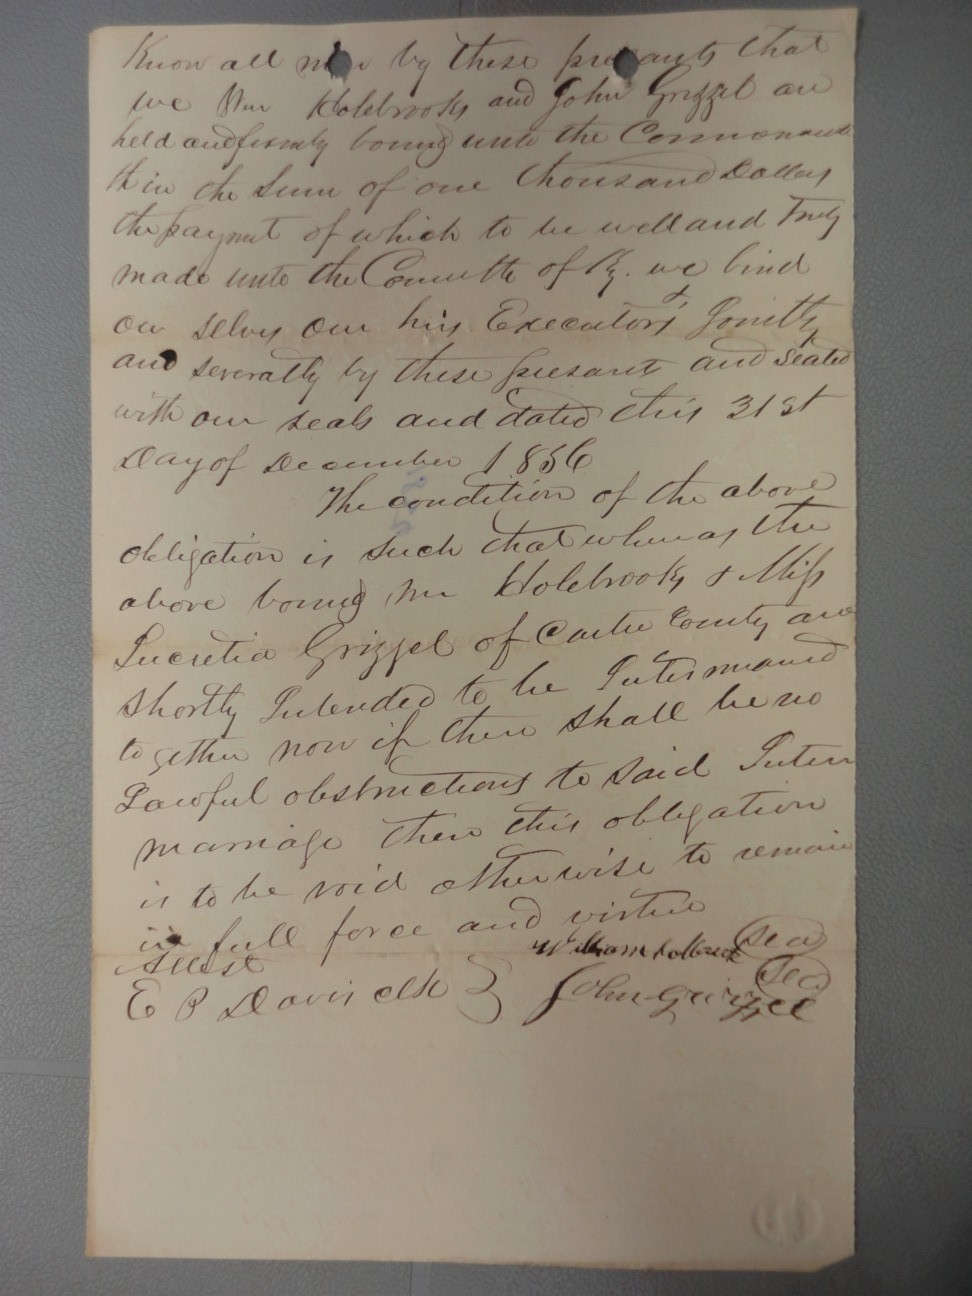 Know all men by these presants that
we Wm Holebrooks and John Grizzel are
held and firmly bound unto the Commonweal
th in the Sum of one thousand Dollars
the payment of which to be well and Truly
made unto the Comwlth of Ky. we bind
our selvs our hirs Executors & Jointtly
and severatly by these presants and Sealed
with our seals and dated this 31st
Day of December 1856
The condition of the above
obligation is such that whereas the
above bound Wm Holebrooks & Miss
Lucretia Grizzel of Carter County are
shortly Intended to be Intermaried
together now if there shall be no
Lawful obstructions to said Inter
marriage then this obligation
is to be void otherwise to remain
in full force and virtue
Attest William holbrook Seal
E B Davis clk John Grizzel Seal